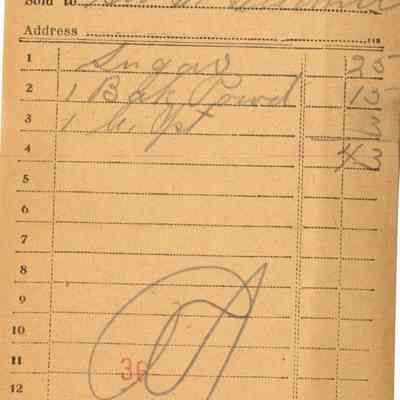 Sold to
Address
1 Sugar 25
2 1 Bak Powd 15
3 1 3
4 43
5
6
7
8
9
10
11 36
12